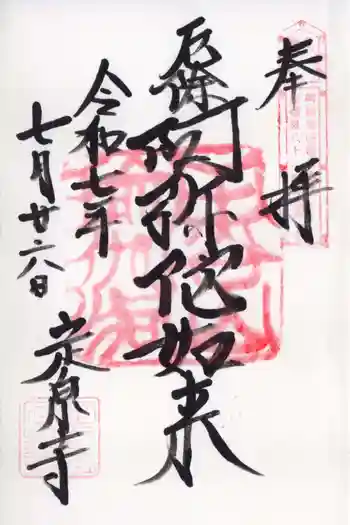 奉拝
厄除阿弥陀如来
令和七年
七月廿六日
定泉寺